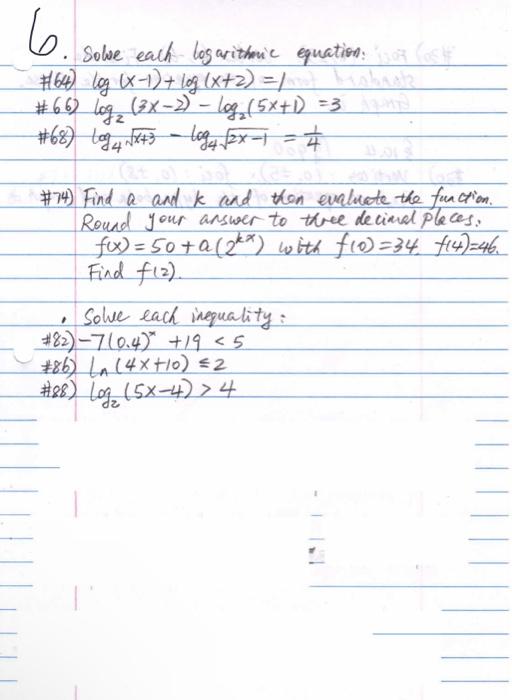 6. Solve each logarithmic equation:
#64) log (x-1) + log (x+2) = 1
#66) log₂ (3x-2) - log₂ (5x+1) = 3
#68) log₄ √x+3 - log₄ √2x-1 = 1/4
#74) Find a and k and then evaluate the function.
Round your answer to three decimal places.
f(x) = 50 + a(2^kx) with f(0)=34. f(4)=46.
Find f(2).
. Solve each inequality:
#82) -7(0.4)^x + 19 < 5
#86) Ln (4x+10) ≤ 2
#88) log₂ (5x-4) > 4